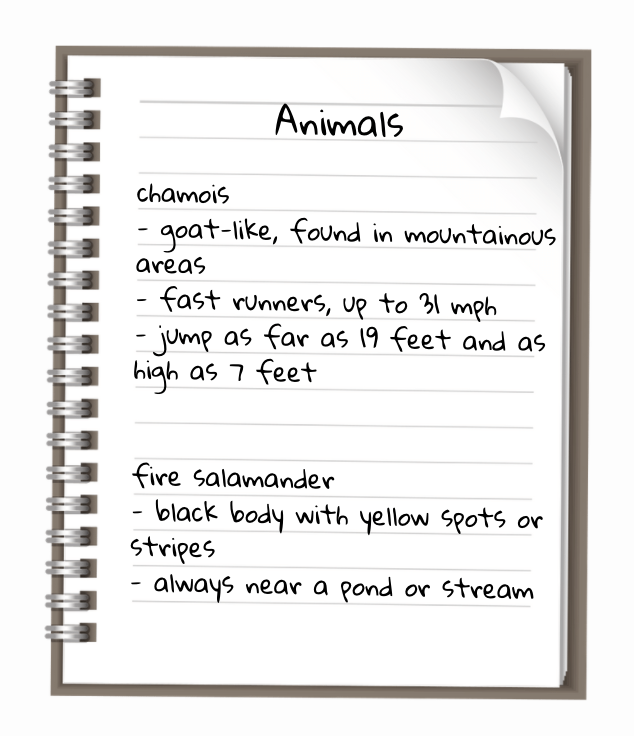 Animals
chamois
- goat-like, found in mountainous
areas
- fast runners, up to 31 mph
- jump as far as 19 feet and as
high as 7 feet
fire salamander
- black body with yellow spots or
stripes
- always near a pond or stream